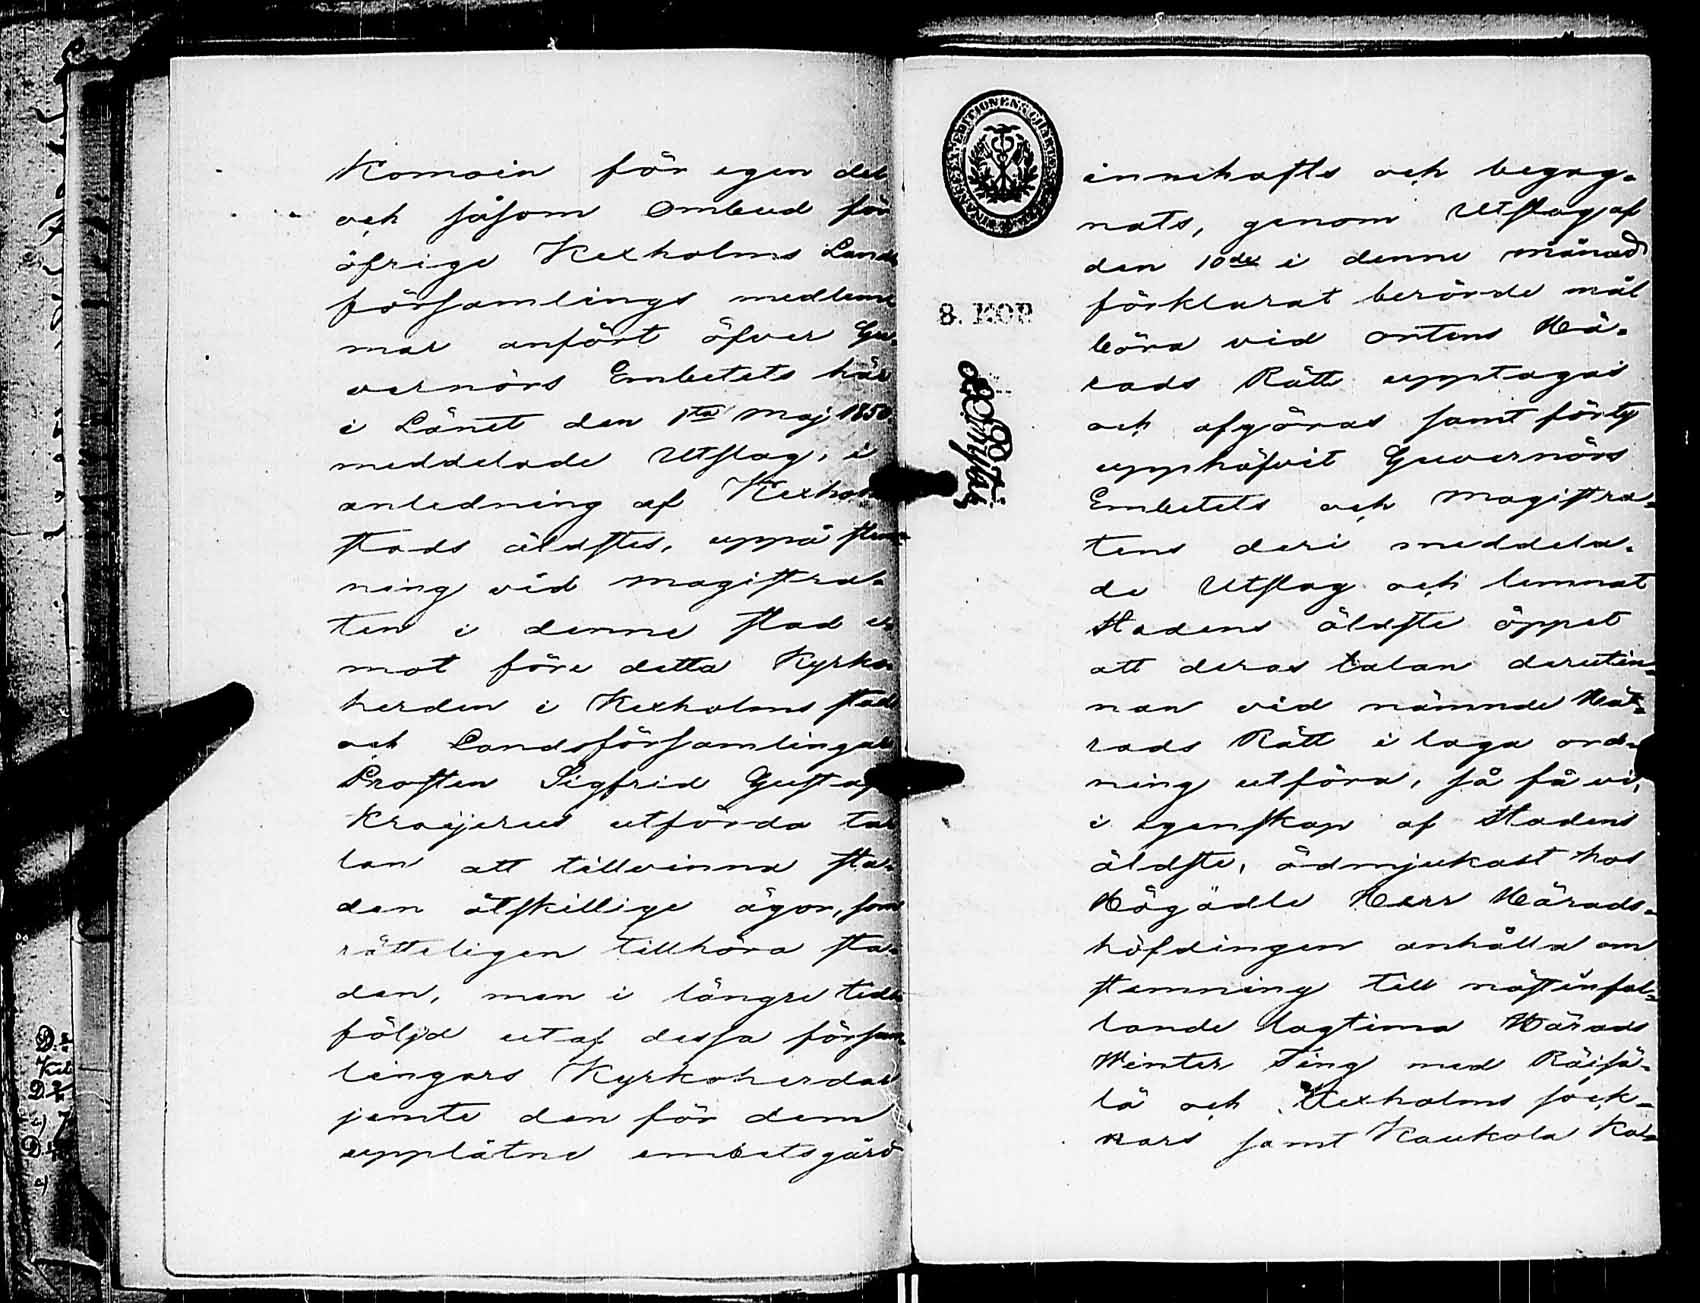 Komoin för egen del
och såsom Ombud för
öfrige Kexholms Lands
församlings medlem
mar anfört öfver Gu-
vernörs Embetets här
i Länet den 1sta Maj 1850
meddelade Utslag, i
anledning af Kexholms
stads äldstes, uppå stäm-
ning vid Magistra-
ten i denne stad e-
mot före detta Kyrko-
herden i Kexholms stad
och Landsförsamlingar
Prosten Sigfrid Gustaf
Kroijerus utförda ta-
lan att tillvinna sta-
den åtskillige ägor, som
rätteligen tillhöra sta-
den, men i längre tids
följd utaf dessa försam-
lingars Kyrkoherdar
jemte den för dem
upplåtne embetsgård
8. KOP.
innehafts och begag-
nats, genom Utslag af
den 10de i denne månad
förklarat berörde mål
böra vid ortens Hä-
rads Rätt upptagas
och afgöras samt förty
upphäfvit Guvernörs
Embetets och Magistra-
tens deri meddela-
de Utslag och lemnat
Stadens äldste öppet
att deras talan derutin-
nan vid nämnde Hä-
rads Rätt i laga ord-
ning utföra, så få vi,
i egenskap af Stadens
äldste, ödmjukast hos
Högädle Herr Härads-
höfdingen anhålla om
stemning till nästinfal-
lande lagtima Härads
Winter Ting med Räisä-
lä och Kexholms sock-
nars samt Kaukola Ka-